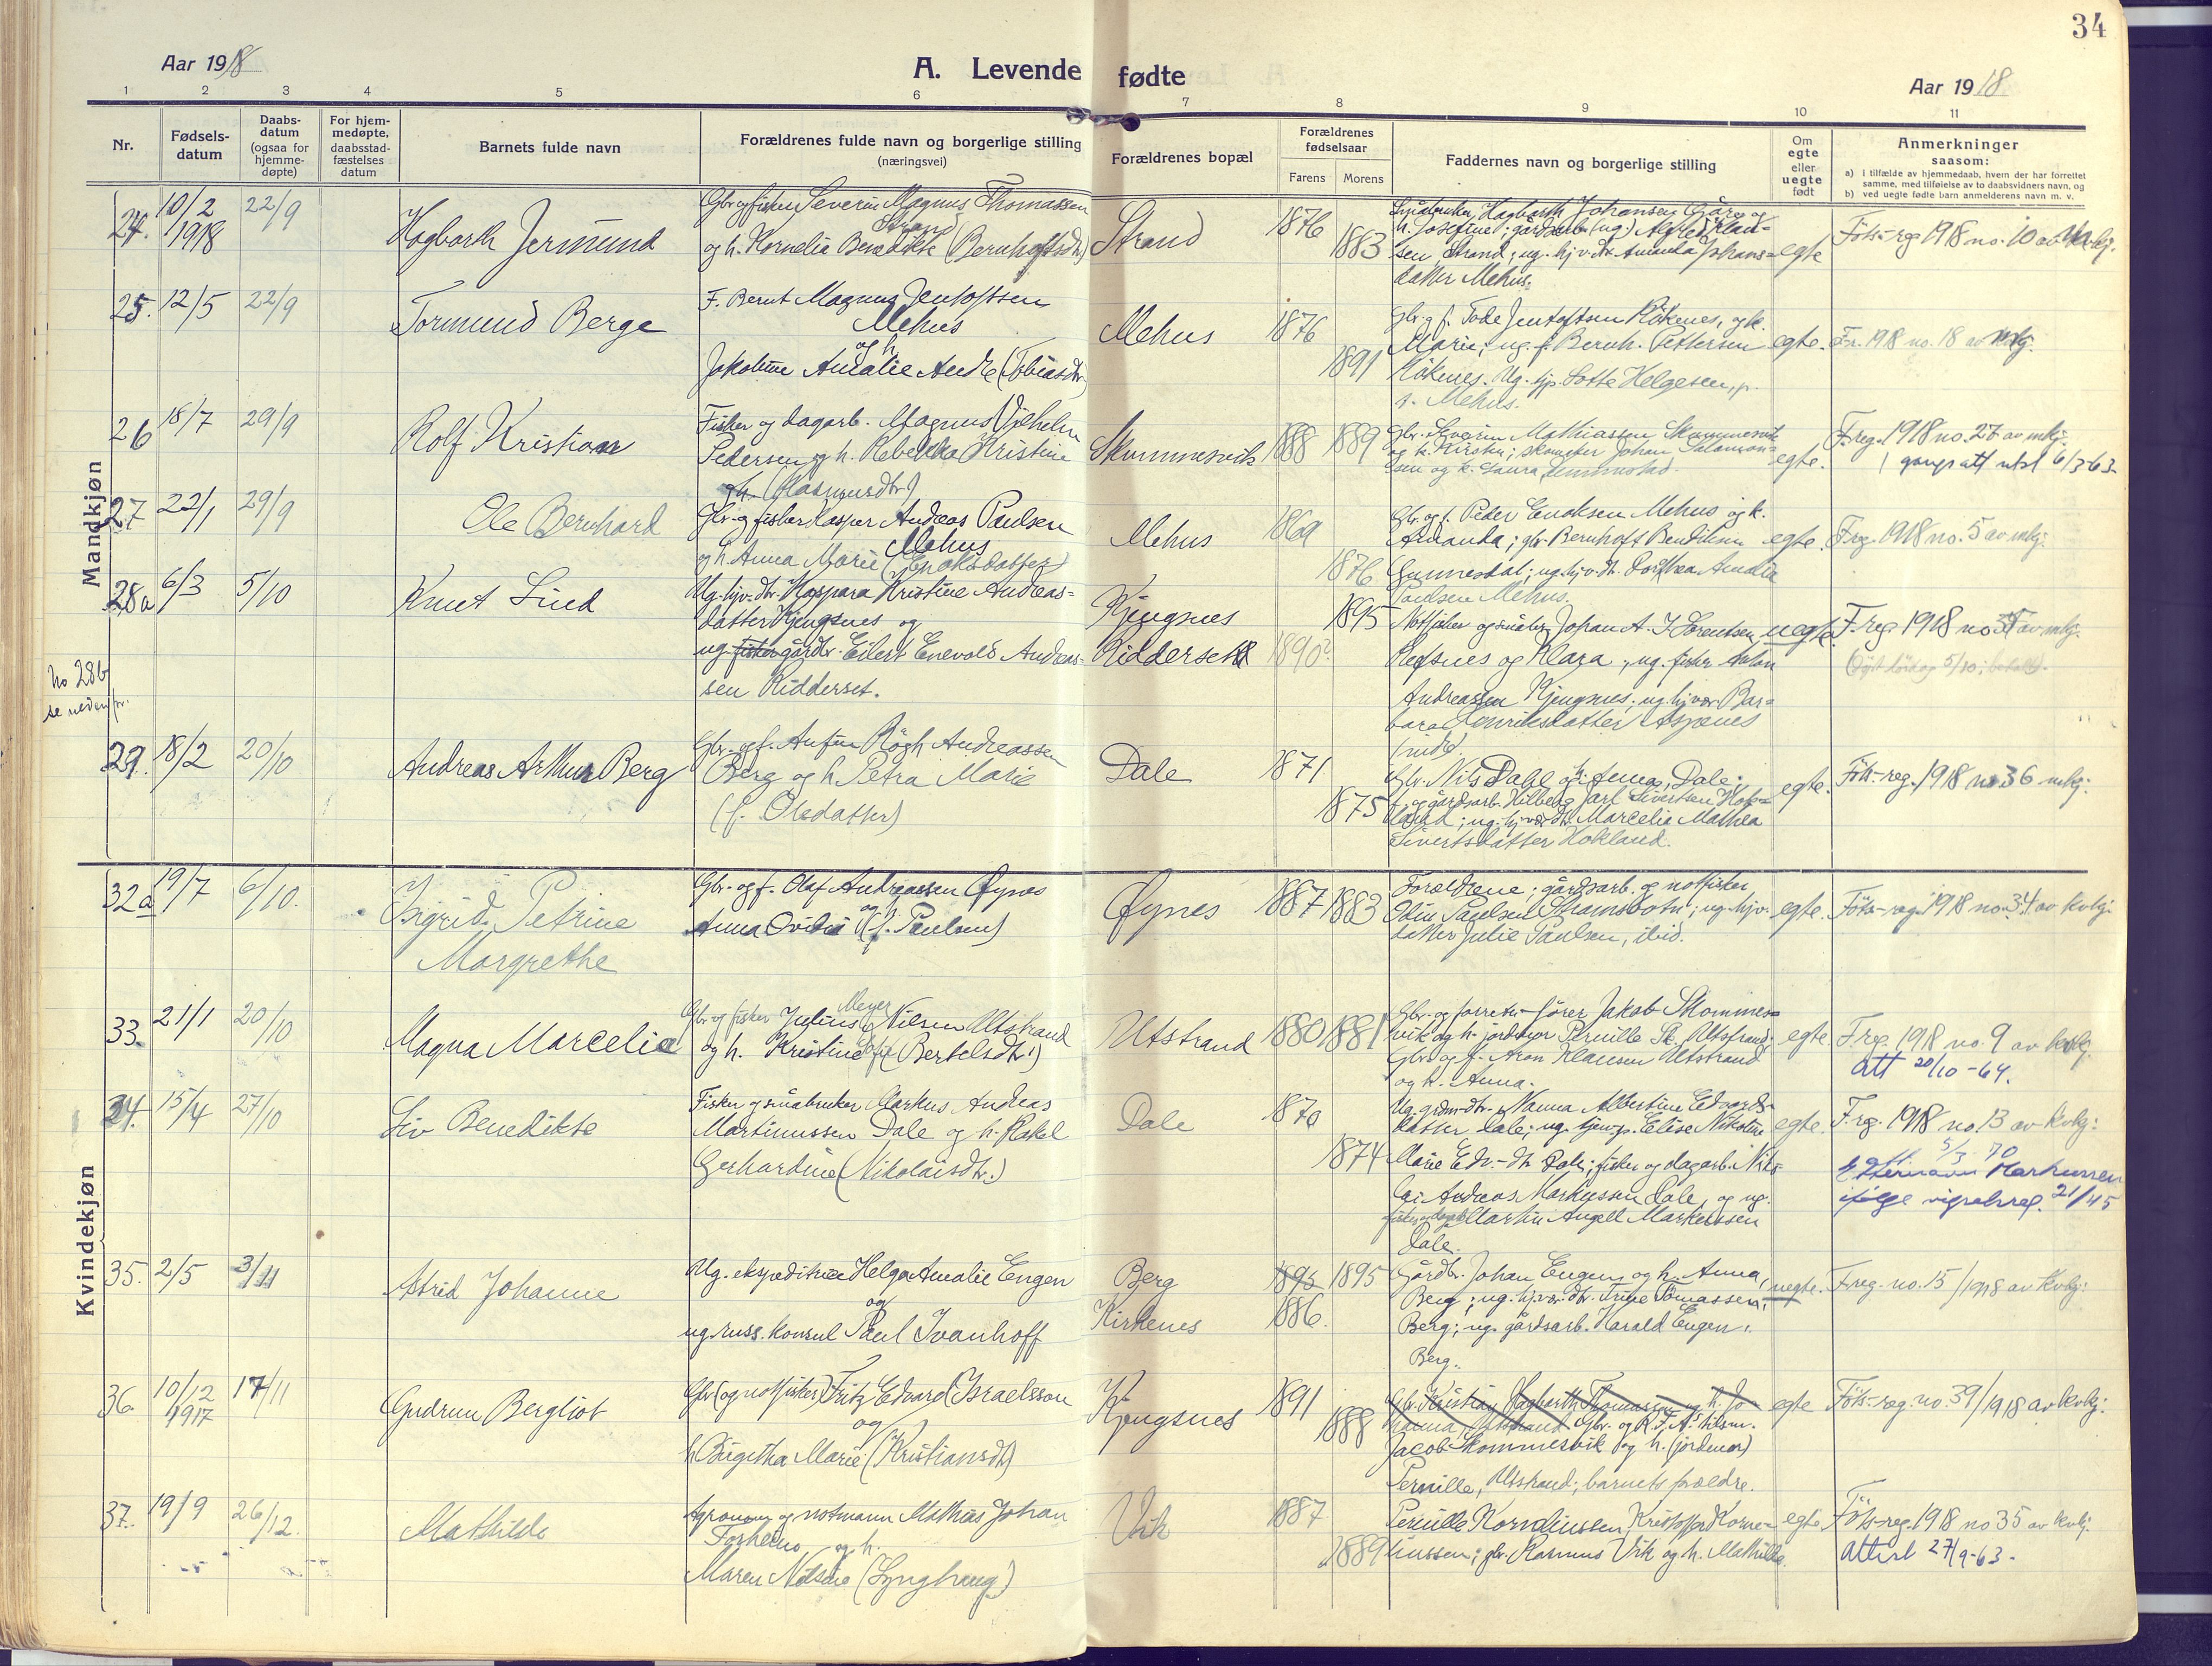 34
Aar 1918
A. Levende fødte
Aar 1918
1 2 3 4 5 6 7 8 9 10 11
Nr.
Fødsels-
datum
Daabs-
datum
(ogsaa for
hjemme-
døpte)
For hjem-
medøpte,
daabsstad-
fæstelses
datum
Barnets fulde navn
Forældrenes fulde navn og borgerlige stilling
(næringsvei)
Forældrenes bopæl
Forældrenes
fødselsaar
Farens Morens
Faddernes navn og borgerlige stilling
Om
egte
eller
uegte
født
Anmerkninger
saasom:
a) I tilfælde av hjemmedaab, hvem der har forrettet
samme, med tilføielse av to daabsvidners navn, og
b) ved uegte fødte barn anmelderens navn m. v.
Mandkjøn
24. 10/2 1918 22/9
Hagbarth Jermund
Gbr og fisker Severin Magnus Thomassen
Strand
og h. Kornelia Benedikte (Bernhoftsdtr)
Strand
1876 1883
Hagbarth Johansen
h. Josefine; gårdsarb. (ug)
sen, Strand; ug. hj.v. dtr Amanda Johans=
datter Mehus.
egte
Föts-reg 1918 no. 10 av mkj.
25. 12/5 22/9
Tormund Berge
F. Bernt Magnus Jentoftsen
Mehus
og h
Jakobine Amalie Andrea (Tobiasdtr)
Mehus
1876 1891
Gbr. og f. Tode Jentoftsen Råkenes, og h.
Marie; ug. f. Bernh. Pettersen
Råkenes. Ug. tjp. Lotte Helgesen, p.
t. Mehus.
egte.
Fr. 1918 no. 18 av mkj.
26 18/7 29/9
Rolf Kristian
Fisker og dagarb. Magnus Vilhelm
Pedersen og h. Rebekka Kristine
(Rasmusdtr)
Skummesvik
1888 1889
Gbr. Severin Mathiassen Skummesvik
og h. Kirsten; skomaker Johan Salamon=
sen og h. Laura
egte.
F.reg. 1918 no. 27 av mkj.
1 gangs att utst 6/3-63
27 22/1 29/9
Ole Bernhard
Gbr. og fisker Kasper Andreas Paulsen
Mehus
og h Anna Marie (Enoksdatter)
Mehus
1869 1876
Gbr. og f. Peder Enoksen Mehus og h.
Amanda; gbr. Bernhoft Bendiksen
Gunnesdal; ug. hj.v. dtr. Dorthea Amalie
Paulsen Mehus.
egte.
Freg. 1918 no. 5 av mkj.
28a 6/3 5/10
Knut Lind
Ug. hjv. dtr. Kaspara Kristine Andreas=
datter Kjengsnes og
ug. fisker gårdbr. Eilert Enevold Andreas-
sen Ridderset.
Kjengsnes
Ridderset
1890? 1895
Notfisker og småbr. Johan A. J. Sörensen
Refsnes og Klara; ug. fisker Anton
Andreassen Kjengsnes; ug. hj.vær. Bar=
bara Henriksdatter Aspenes
(indre).
uegte
F.reg 1918 no 31 av mkj.
No 28b
se nedenfor.
29. 18/2 20/10
Andreas Arthur Berg
Gbr. og f. Anton Rögh Andreassen
Berg og h Petra Marie
(f. Olsdatter)
Dale
1871 1875
Gbr. Nils Dahl og h. Anna, Dale;
gårdsarb. Hilberg Jarl Sivertsen Hok=
land; ug. hj.vær. dtr. Marcelia Mathea
Sivertsdatter Hokland.
egte.
Föts-reg. 1918 no. 36 mkj.
Kvindekjøn
32a 19/7 6/10.
Sigrid Petrine
Margrethe
Gbr. og f. Olaf Andreassen Öynes
og h
Anna Ovidia (f. Paulsen)
Öynes
1887 1883
Forældrene; gårdsarb. og notfisker
Odin Paulsen Stramsbotn; ug. hjv.
datter Julie Paulsen, ibid.
egte.
Föts-reg. 1918 no. 34 av kvkj.
33. 21/1 20/10
Magna Marcelie
Gbr og fisker Julius Meyer Nilsen Utstrand
og h. Kristine Sofie (Bertelsdtr)
Utstrand
1880 1881
Gbr. og forretn.-fører Jakob Skommes=
vik og h. jordmor Pernille Sk. Utstrand;
Gbr. og f. Aron Klausen Utstrand
og h. Anna.
egte.
F.reg. 1918 no. 9 av kvkj.
att 20/10-64.
34. 15/4 27/10
Liv Benedikte
Fisker og småbruker Markus Andreas
Martinussen Dale og h. Rakel
Gerhardine (Nikolaisdtr.)
Dale
1870 1874
Ug. grdm.-dtr. Nanna Albertine Edvards-
datter Dale; ug. tjenp. Elise Nikoline
Marie Edv.-dtr Dale; fisker og dagarb. Niko-
lai Andreas Markussen Dale, og ug.
fisker og dagarb. Martin Angell Markussen
Dale.
egte.
F.reg. 1918 no. 13 av kvkj.
att 5/3 70
Etternavn Markussen
ifølge vigselsreg. 21/45
35. 2/5 3/11
Astrid Johanne
Ug. ekspeditrice Helga Amalie Engen
og
ug. russ. konsul Paul Ivanhoff
Berg
Kirkenes
1895 1895
1886.
Gårdbr. Johan Engen og h. Anna,
Berg; ug. hj.vær. dtr. Trine Tomassen,
Berg; ug. gårdsarb. Harald Engen,
Berg.
uegte.
F.reg. no. 15/1918 av kvkj.
36. 10/12 1917 17/11
Gudrun Bergliot
Gbr (og notfisker) Fritz Edvard Israelsson
og
h Birgitha Marie (Kristiansdtr)
Kjengsnes
1891 1888
Gbr. Kristian Hagbarth Thomassen og h. Jo-
hanna, Utstrand. Gbr. og R.F.A. tilsm.
Jacob Skommesvik og h. (jordmor)
Pernille, Utstrand; barnets forældre.
egte
Föts-reg. no. 39/1918 av kvkj.
37. 19/9 26/12.
Mathilde
Agronom og notmann Mathias Johan
Forhemo og h.
Maren (Lynghaug)
Vik
1887 1889
Pernille Korneliussen, Kristoffer Korne-
liussen; gbr. Rasmus Vik og h. Mathilde.
egte
Föts-reg. 1918 no 35 av kvkj.
Attest 27/9-63.